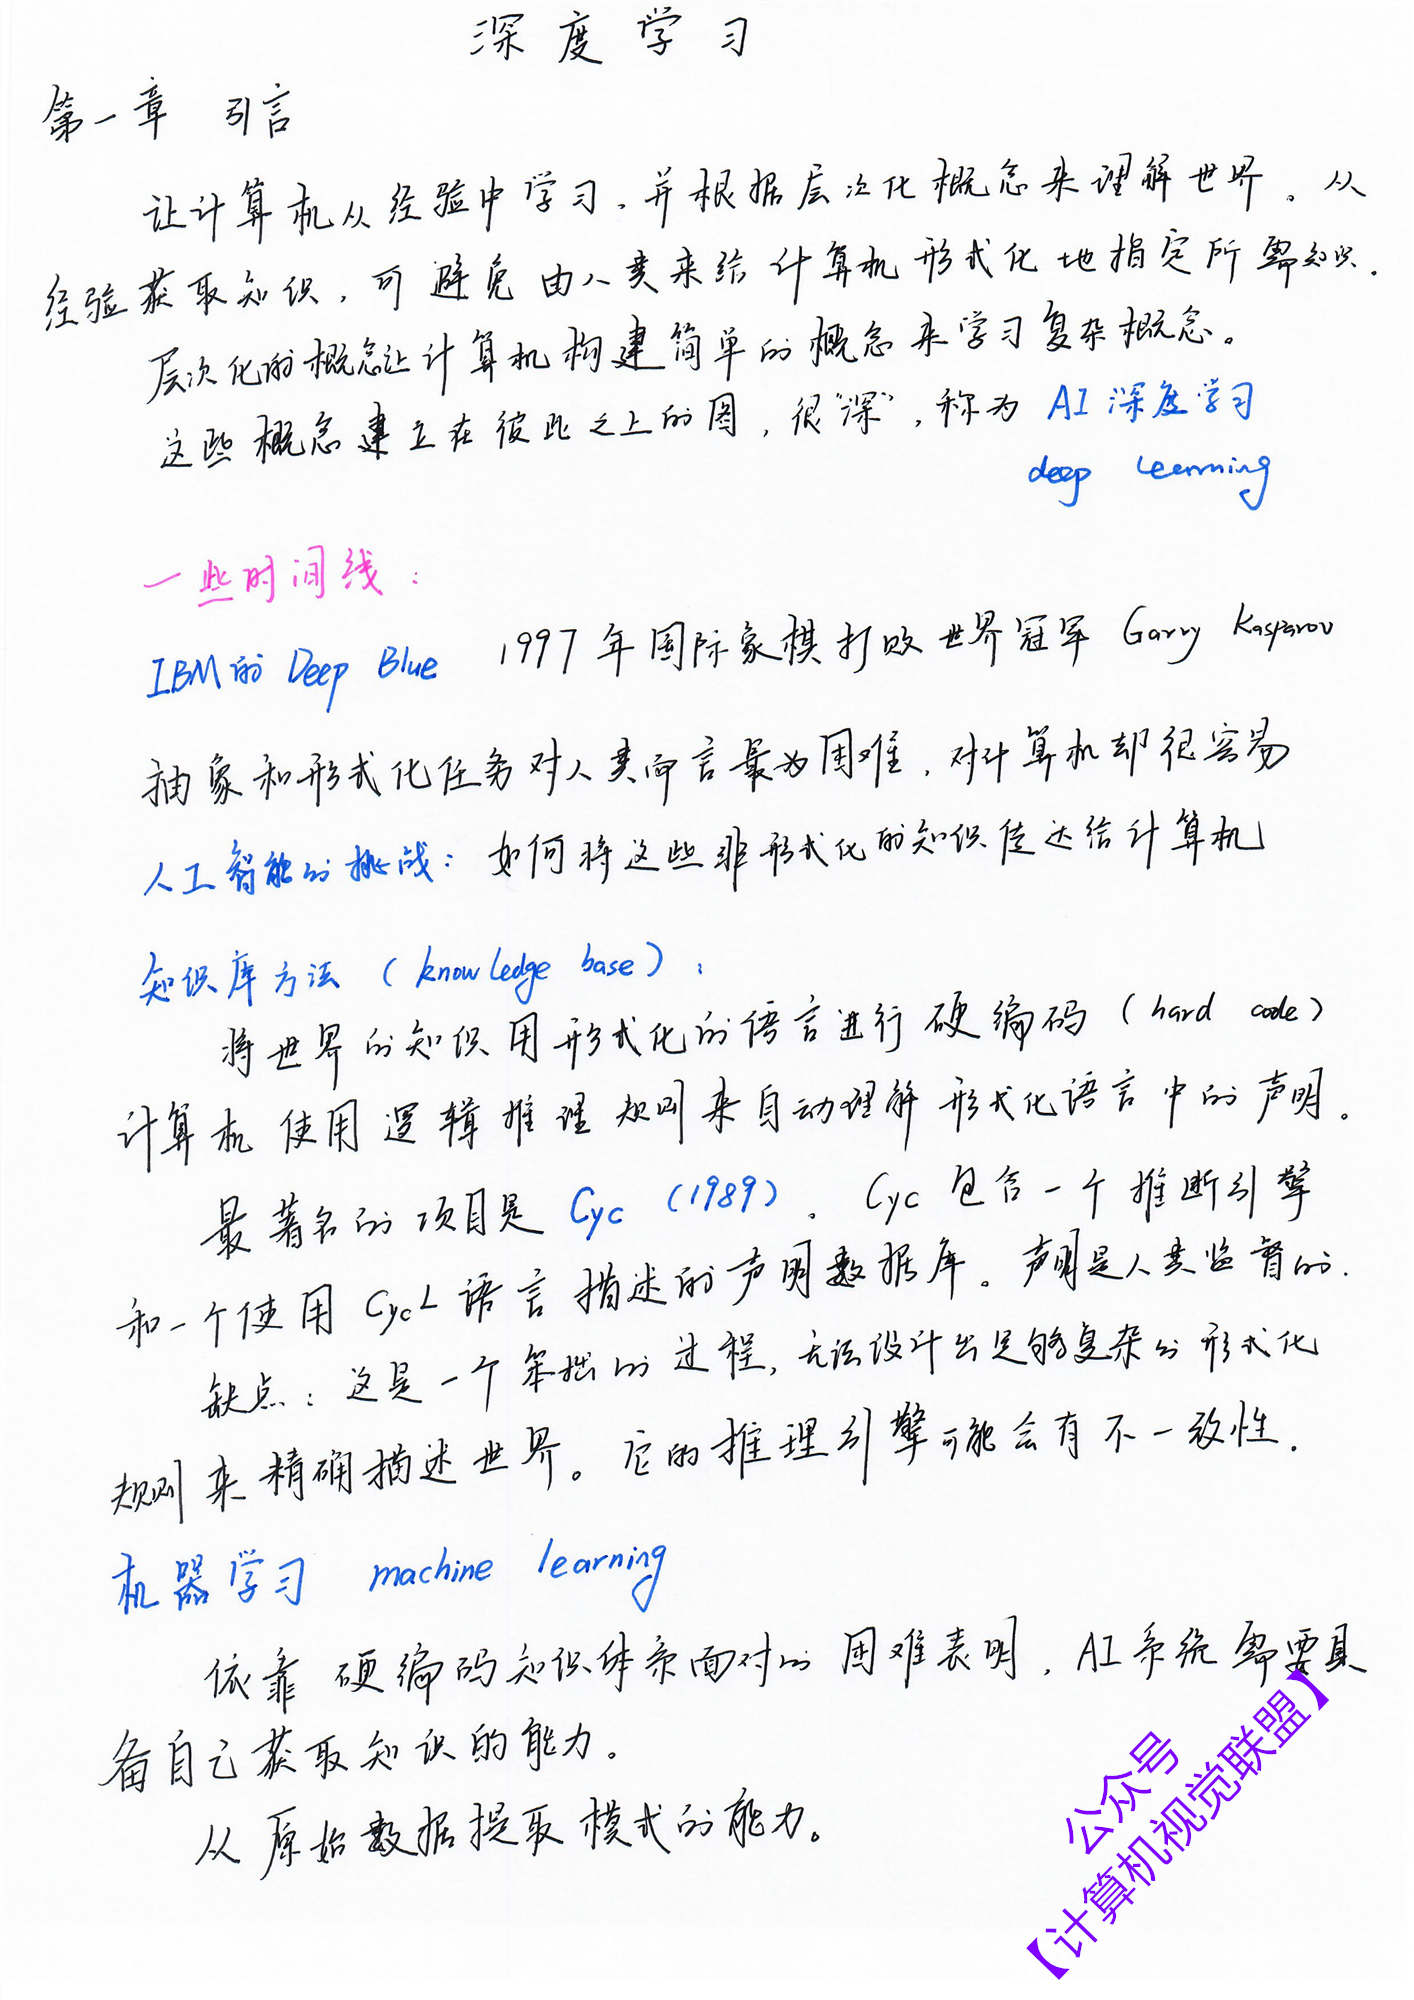 深度学习
第一章 引言
让计算机从经验中学习，并根据层次化概念来理解世界。从
经验获取知识，可避免由人类来给计算机形式化地指定所需知识.
层次化的概念让计算机构建简单的概念来学习复杂概念。
这些概念建立在彼此之上的图，很"深"，称为 AI 深度学习
deep learning
一些时间线：
IBM的 Deep Blue 1997年国际象棋打败世界冠军 Garry Kasparov
抽象和形式化任务对人类而言最为困难，对计算机却很容易
人工智能的挑战：如何将这些非形式化的知识传达给计算机
知识库方法（knowledge base）：
将世界的知识用形式化的语言进行硬编码（hard code）
计算机使用逻辑推理规则来自动理解形式化语言中的声明。
最著名的项目是 Cyc（1989）。Cyc 包含一个推断引擎
和一个使用 CycL 语言描述的声明数据库。声明是人类监督的.
缺点：这是一个笨拙的过程，无法设计出足够复杂的形式化
规则来精确描述世界。它的推理引擎可能会有不一致性.
机器学习 machine learning
依靠硬编码知识体系面对的困难表明，AI系统需要具
备自己获取知识的能力。
从原始数据提取模式的能力。
公众号
【计算机视觉联盟】